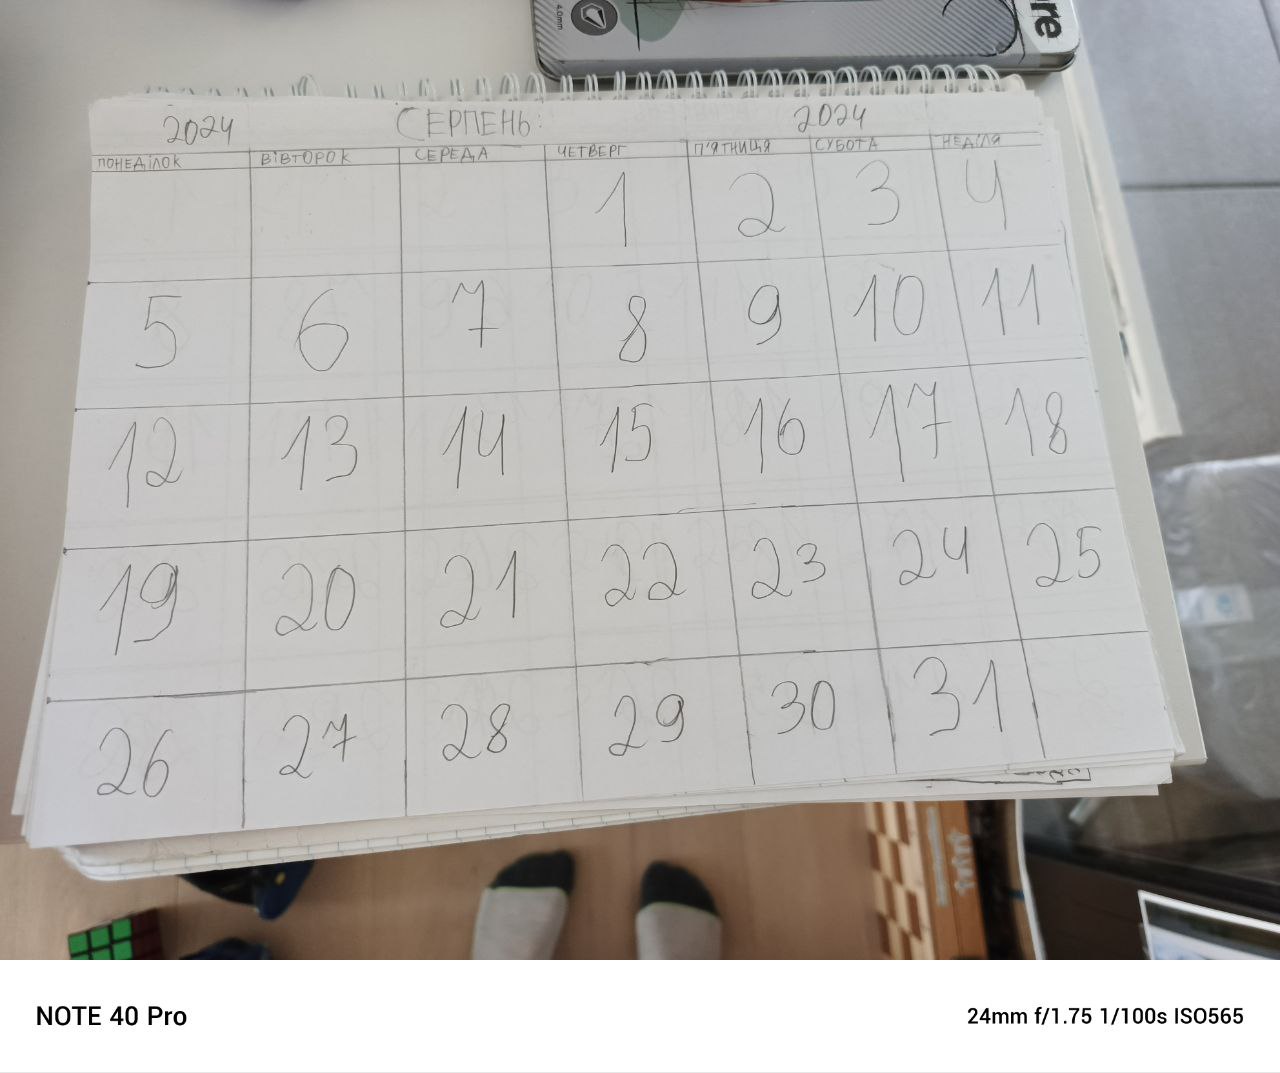 4.0mm
re
2024 СЕРПЕНЬ: 2024
ПОНЕДІЛОК ВІВТОРОК СЕРЕДА ЧЕТВЕРГ П'ЯТНИЦЯ СУБОТА НЕДІЛЯ
1 2 3 4
5 6 7 8 9 10 11
12 13 14 15 16 17 18
19 20 21 22 23 24 25
26 27 28 29 30 31
NOTE 40 Pro
24mm f/1.75 1/100s ISO565